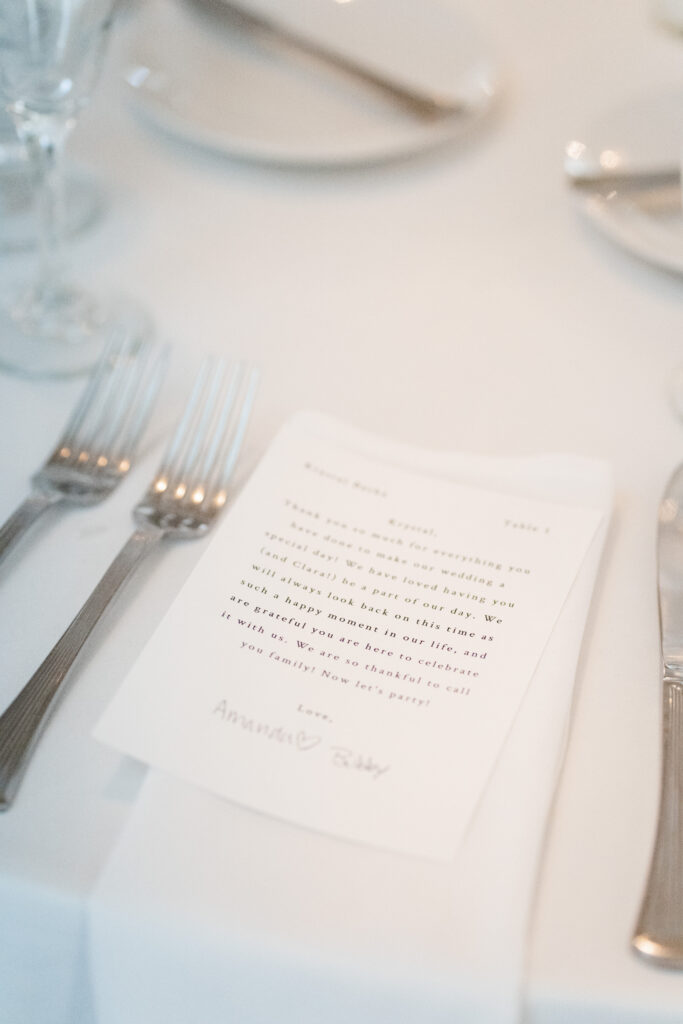 Krystal
Table 1
Krystal,
Thank you so much for everything you
have done to make our wedding a
special day! We have loved having you
(and Clara!) be a part of our day. We
will always look back on this time as
such a happy moment in our life, and
are grateful you are here to celebrate
it with us. We are so thankful to call
you family! Now let's party!
Love,
Amanda♡ Bobby